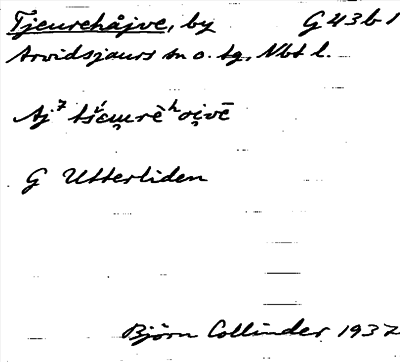 Tjeurehåjve, by G 43 b 1
Arvidsjaurs sn o. tg, Nbt l.
Aj⁷
G Utterliden
Björn Collinder 1937